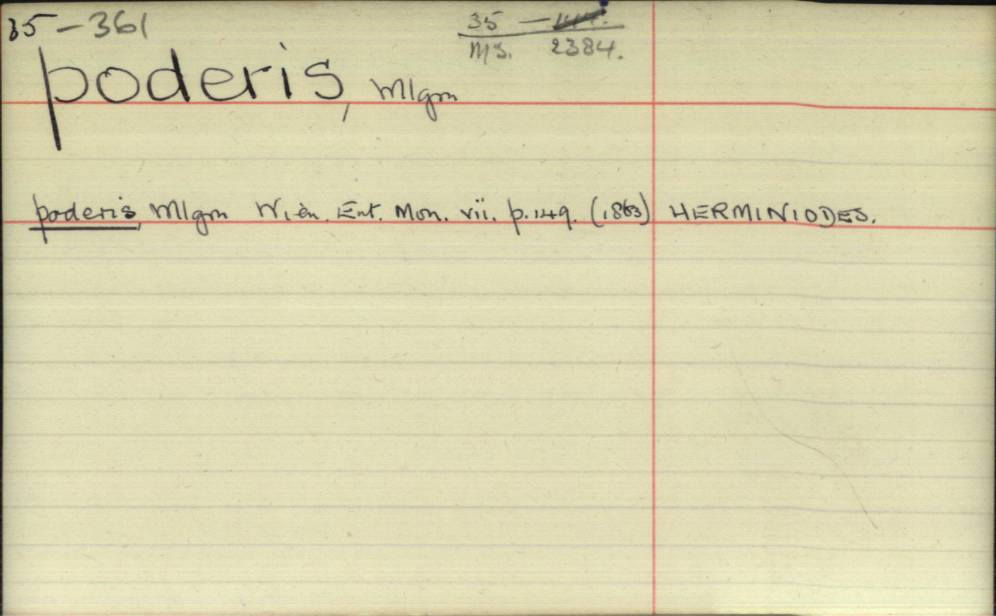 35-361
35 —
MS. 2384.
poderis, Mlgm
poderis, Mlgm Wien. Ent. Mon. vii. p. 149. (1863) HERMINIODES.